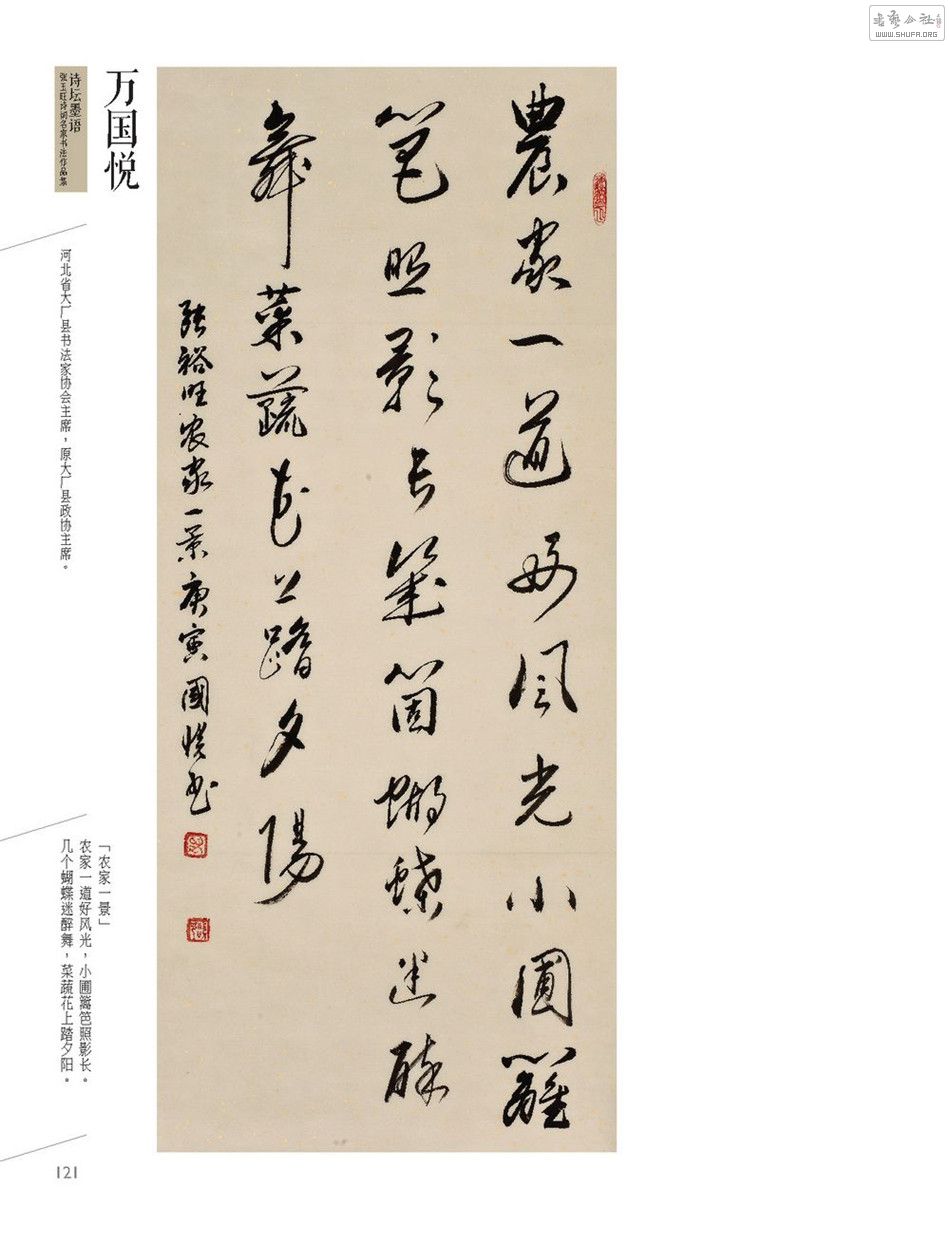 书艺公社
WWW.SHUFA.ORG
農家一道好風光小圃籬
笆照影長幾箇蝴蝶迷醉
舞菜蔬花上踏夕陽
張裕旺农家一景庚寅國悦书
万国悦
诗坛墨语
张玉旺诗词名家书法作品集
河北省大厂县书法家协会主席，原大厂县政协主席。
「农家一景」
农家一道好风光，小圃篱笆照影长。
几个蝴蝶迷醉舞，菜蔬花上踏夕阳。
121